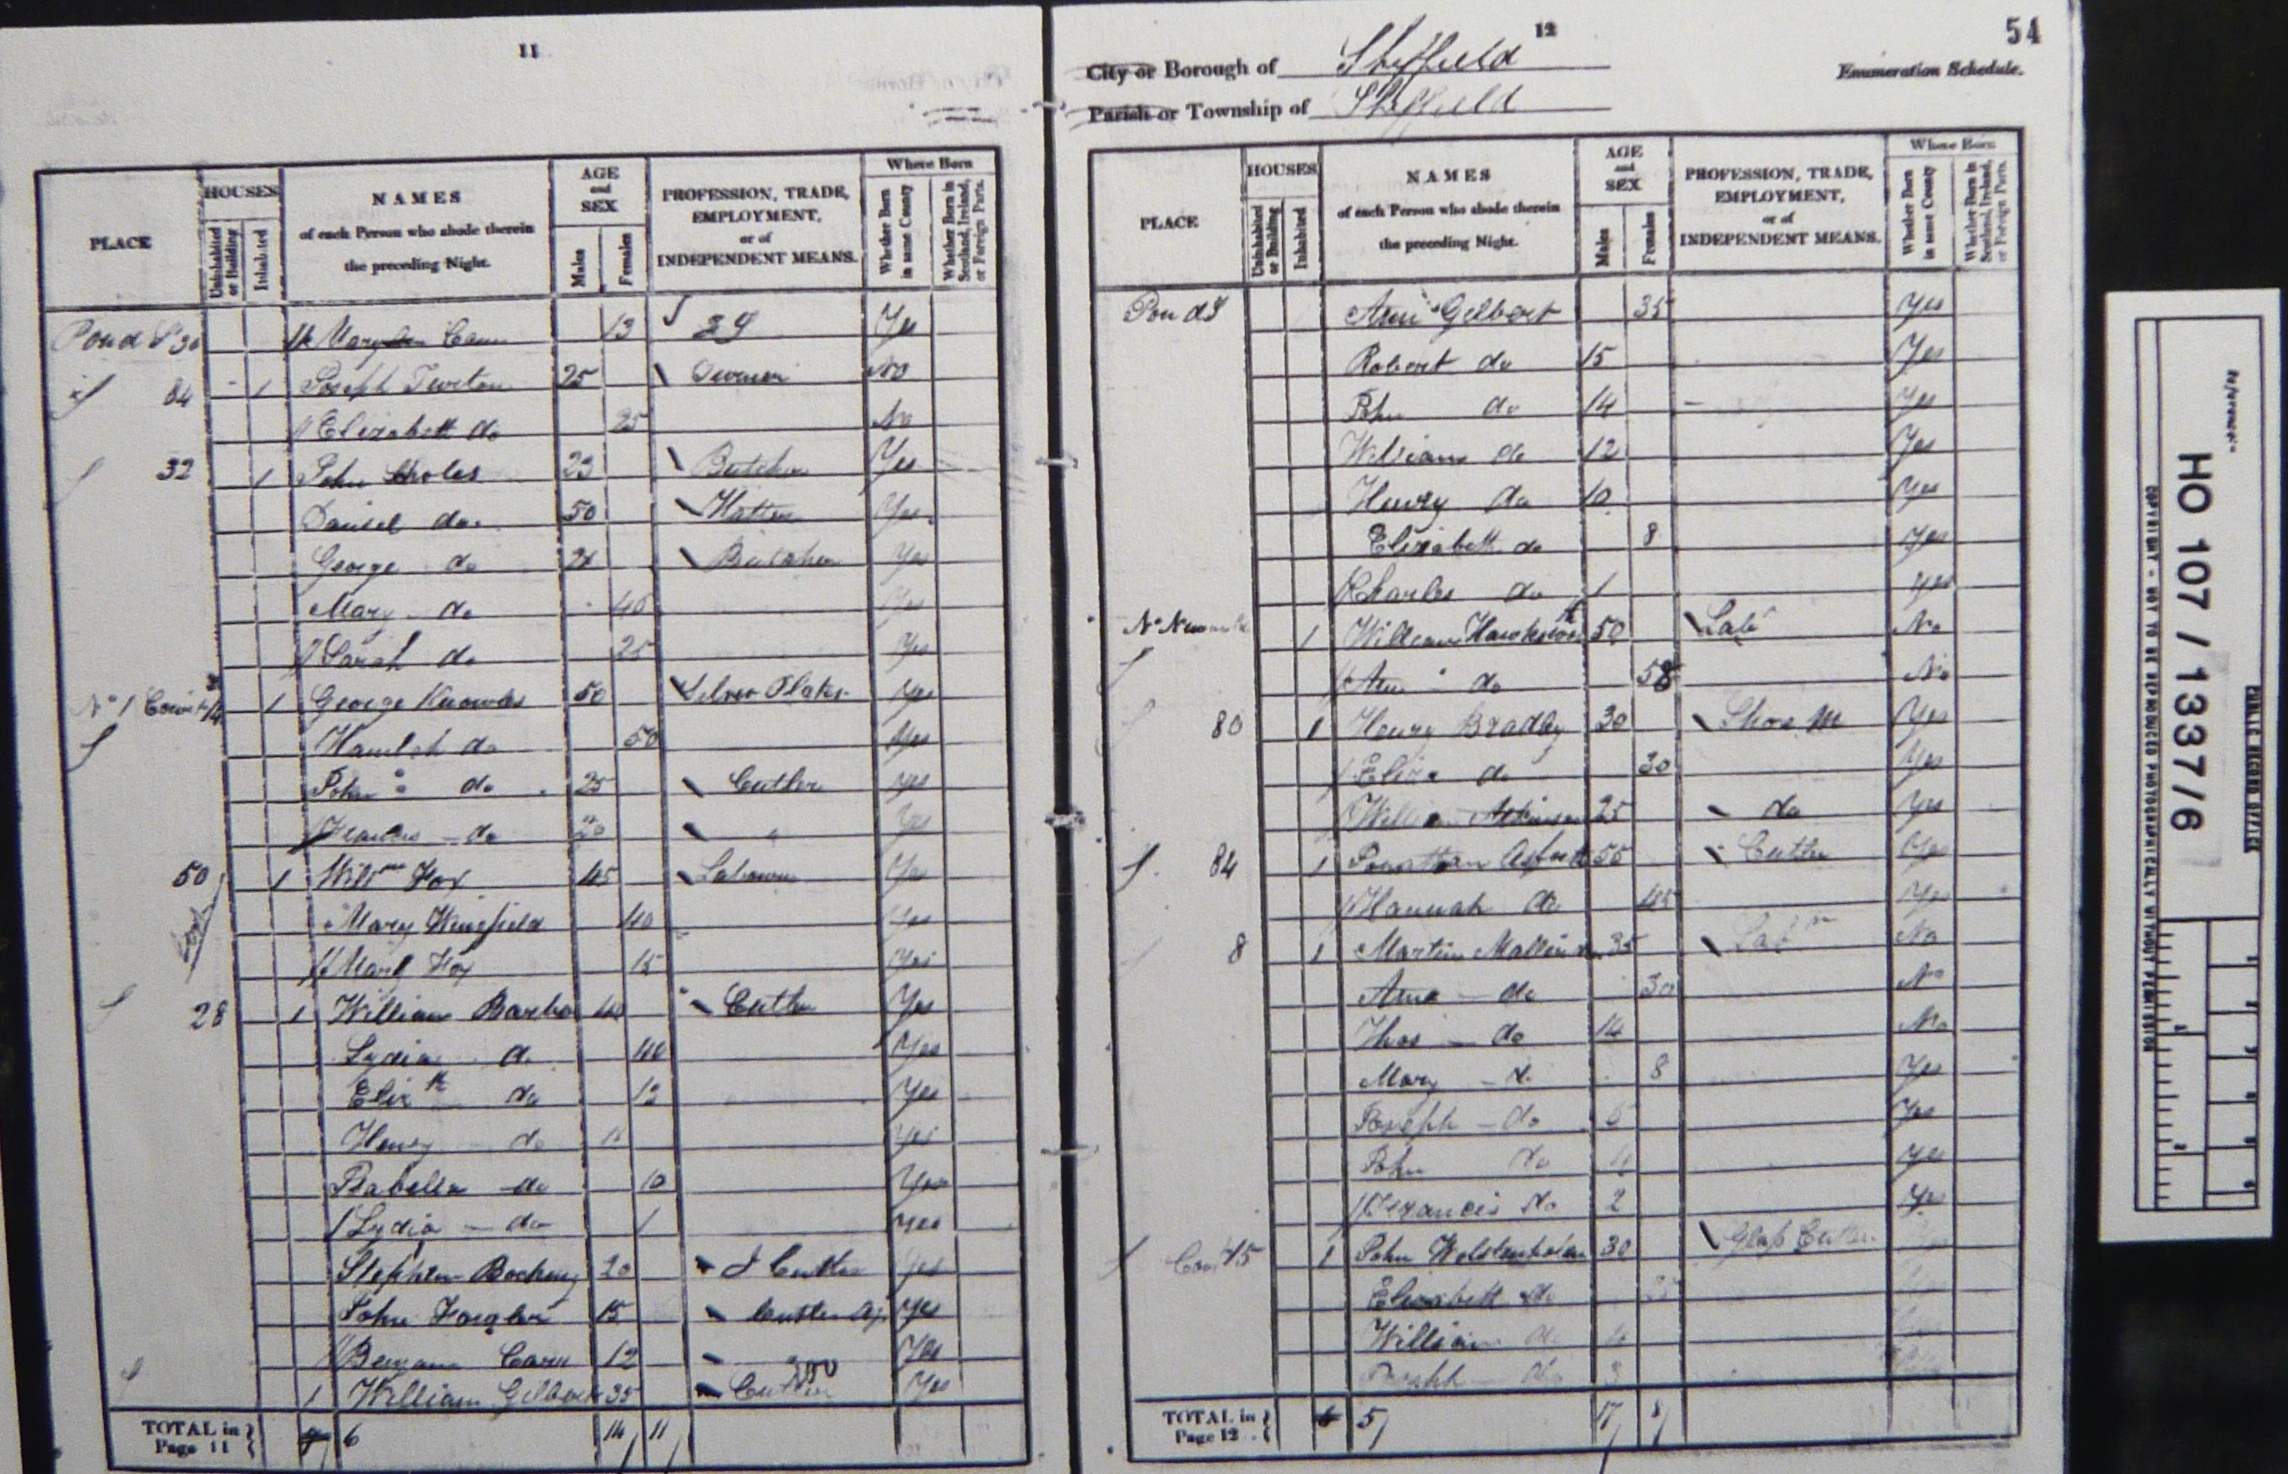 11
PLACE
HOUSES
Uninhabited or Building
Inhabited
NAMES
of each Person who abode therein
the preceding Night.
AGE
and
SEX
Males
Females
PROFESSION, TRADE,
EMPLOYMENT,
or of
INDEPENDENT MEANS.
Where Born
Whether Born in same County
Whether Born in Scotland, Ireland, or Foreign Parts.
Pond S 13 Yes
84 1 Joseph Turton 25 No
Elizabeth do 25 No
32 1 John Scholes 23 Butcher Yes
Daniel do 50 Hatter Yes
George do Butcher Yes
Mary do 45 Yes
Sarah do 25 Yes
No 1 1 George Knowles 50 Silver Plater Yes
Hannah do 50 Yes
John do 25 Cutler Yes
Frances do 20 Yes
50 1 Willm Fox 45 Labourer Yes
Mary Winfield 40 Yes
Mary Fox 15 Yes
28 1 William Barber 40 Cutler Yes
Lydia do 40 Yes
Elizth do 12 Yes
Henry do Yes
Isabella do 10 Yes
Lydia do 1 Yes
Stephen Bocking 20 J Cutler Yes
John 15 Cutler Ap Yes
12 Yes
1 William Gilbert 35 Cutler Yes
TOTAL in
Page 11
6 14 11
12
54
City or Borough of Sheffield
Enumeration Schedule.
Parish or Township of Sheffield
PLACE
HOUSES
Uninhabited or Building
Inhabited
NAMES
of each Person who abode therein
the preceding Night.
AGE
and
SEX
Males
Females
PROFESSION, TRADE,
EMPLOYMENT,
or of
INDEPENDENT MEANS.
Where Born
Whether Born in same County
Whether Born in Scotland, Ireland, or Foreign Parts.
Pond S Ann Gilbert 35 Yes
Robert do 15 Yes
John do 14 Yes
William do 12 Yes
Henry do 10 Yes
Elizabeth do 8 Yes
Charles do 1 Yes
1 William Hawksworth 50 Labr No
Ann do No
80 1 Henry Bradley 30 Shoe M Yes
Eliza do 30 Yes
William Atkinson 25 do Yes
84 1 Jonathan 55 Cutler Yes
Hannah do 45 Yes
8 1 Martin 35 Labr No
Ann do 30 No
Thos do 14 No
Mary do 8 Yes
Joseph do 5 Yes
John do 4 Yes
Francis do 2 Yes
1 John Wolstenholm 30 Glass Cutler
Elizabeth do 25
William do
Joseph do 3
TOTAL in
Page 12
5 17 8
Reference
HO 107 / 1337/6
PUBLIC RECORD OFFICE
COPYRIGHT - NOT TO BE REPRODUCED PHOTOGRAPHICALLY WITHOUT PERMISSION